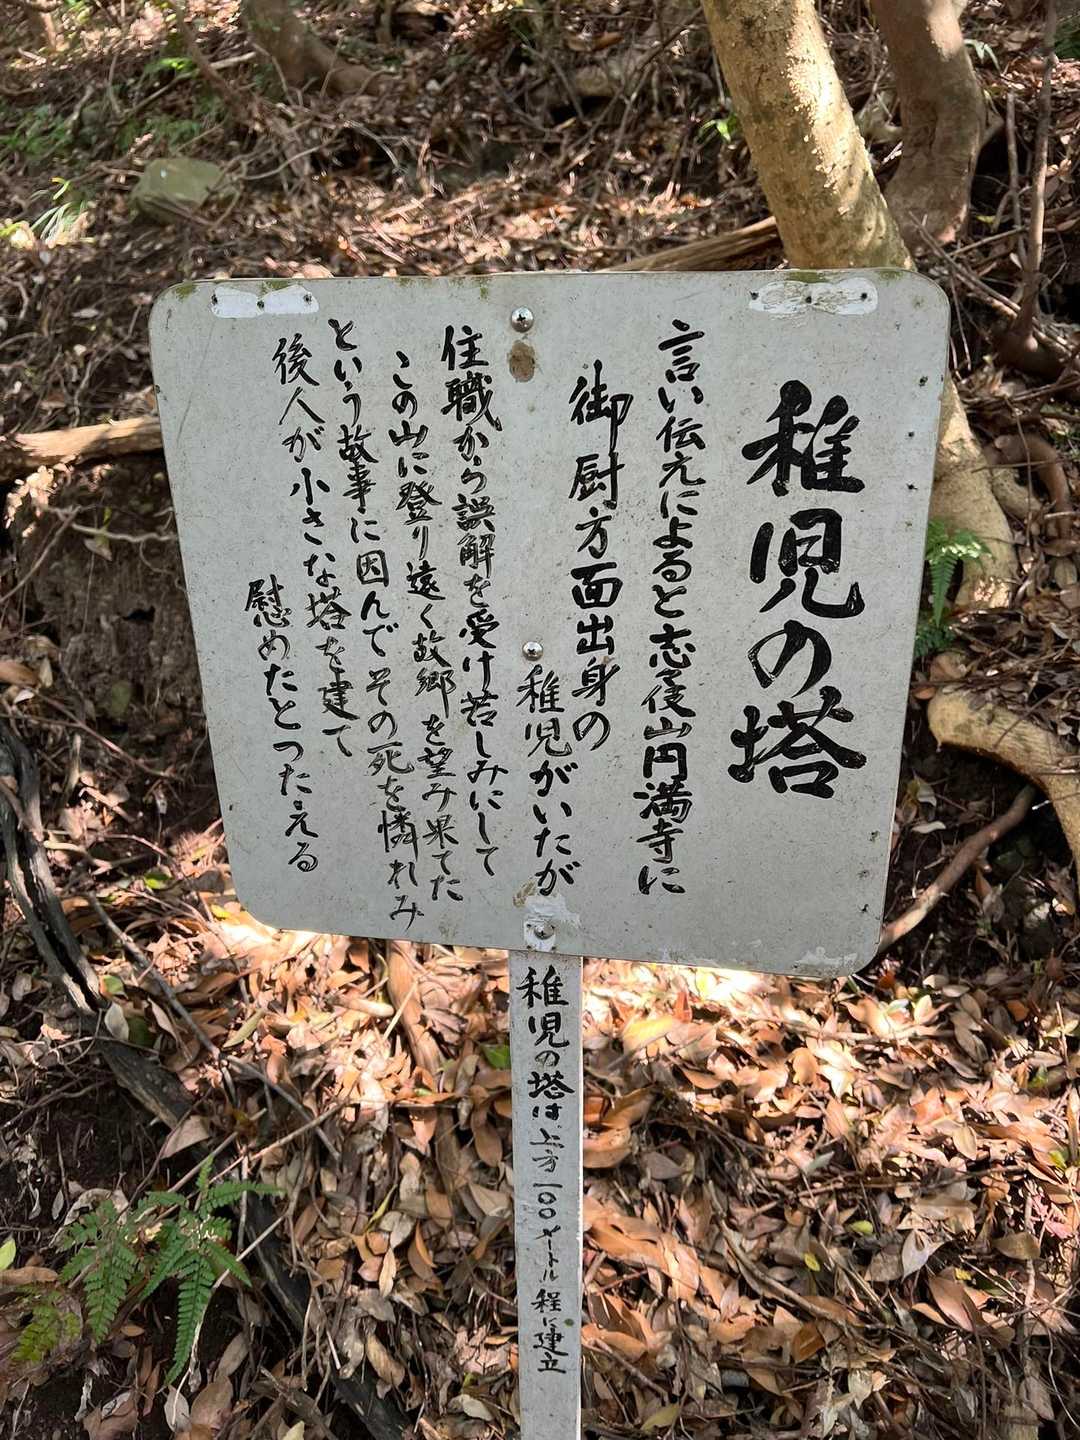 稚児の塔
言い伝えによると志々伎山円満寺に
御厨方面出身の
稚児がいたが
住職から誤解を受け苦しみにして
この山に登り遠く故郷を望み果てた
という故事に因んでその死を憐れみ
後人が小さな塔を建て
慰めたとつたえる
稚児の塔は上方一〇〇メートル程に建立